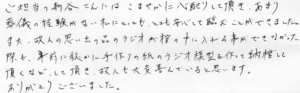 ご担当の新谷さんにはこまやかに心配りして頂き、あまり
葬儀の経験がない私にとっても、とても安心して臨むことができました。
また、故人の思い出の品のラジオが棺の中に入れる事ができなかった
際も、事前に秘かに手作りの紙のラジオ模型を作って納棺して
頂くなど、して頂き、故人も大変喜んでいると思います。
ありがとうございました。